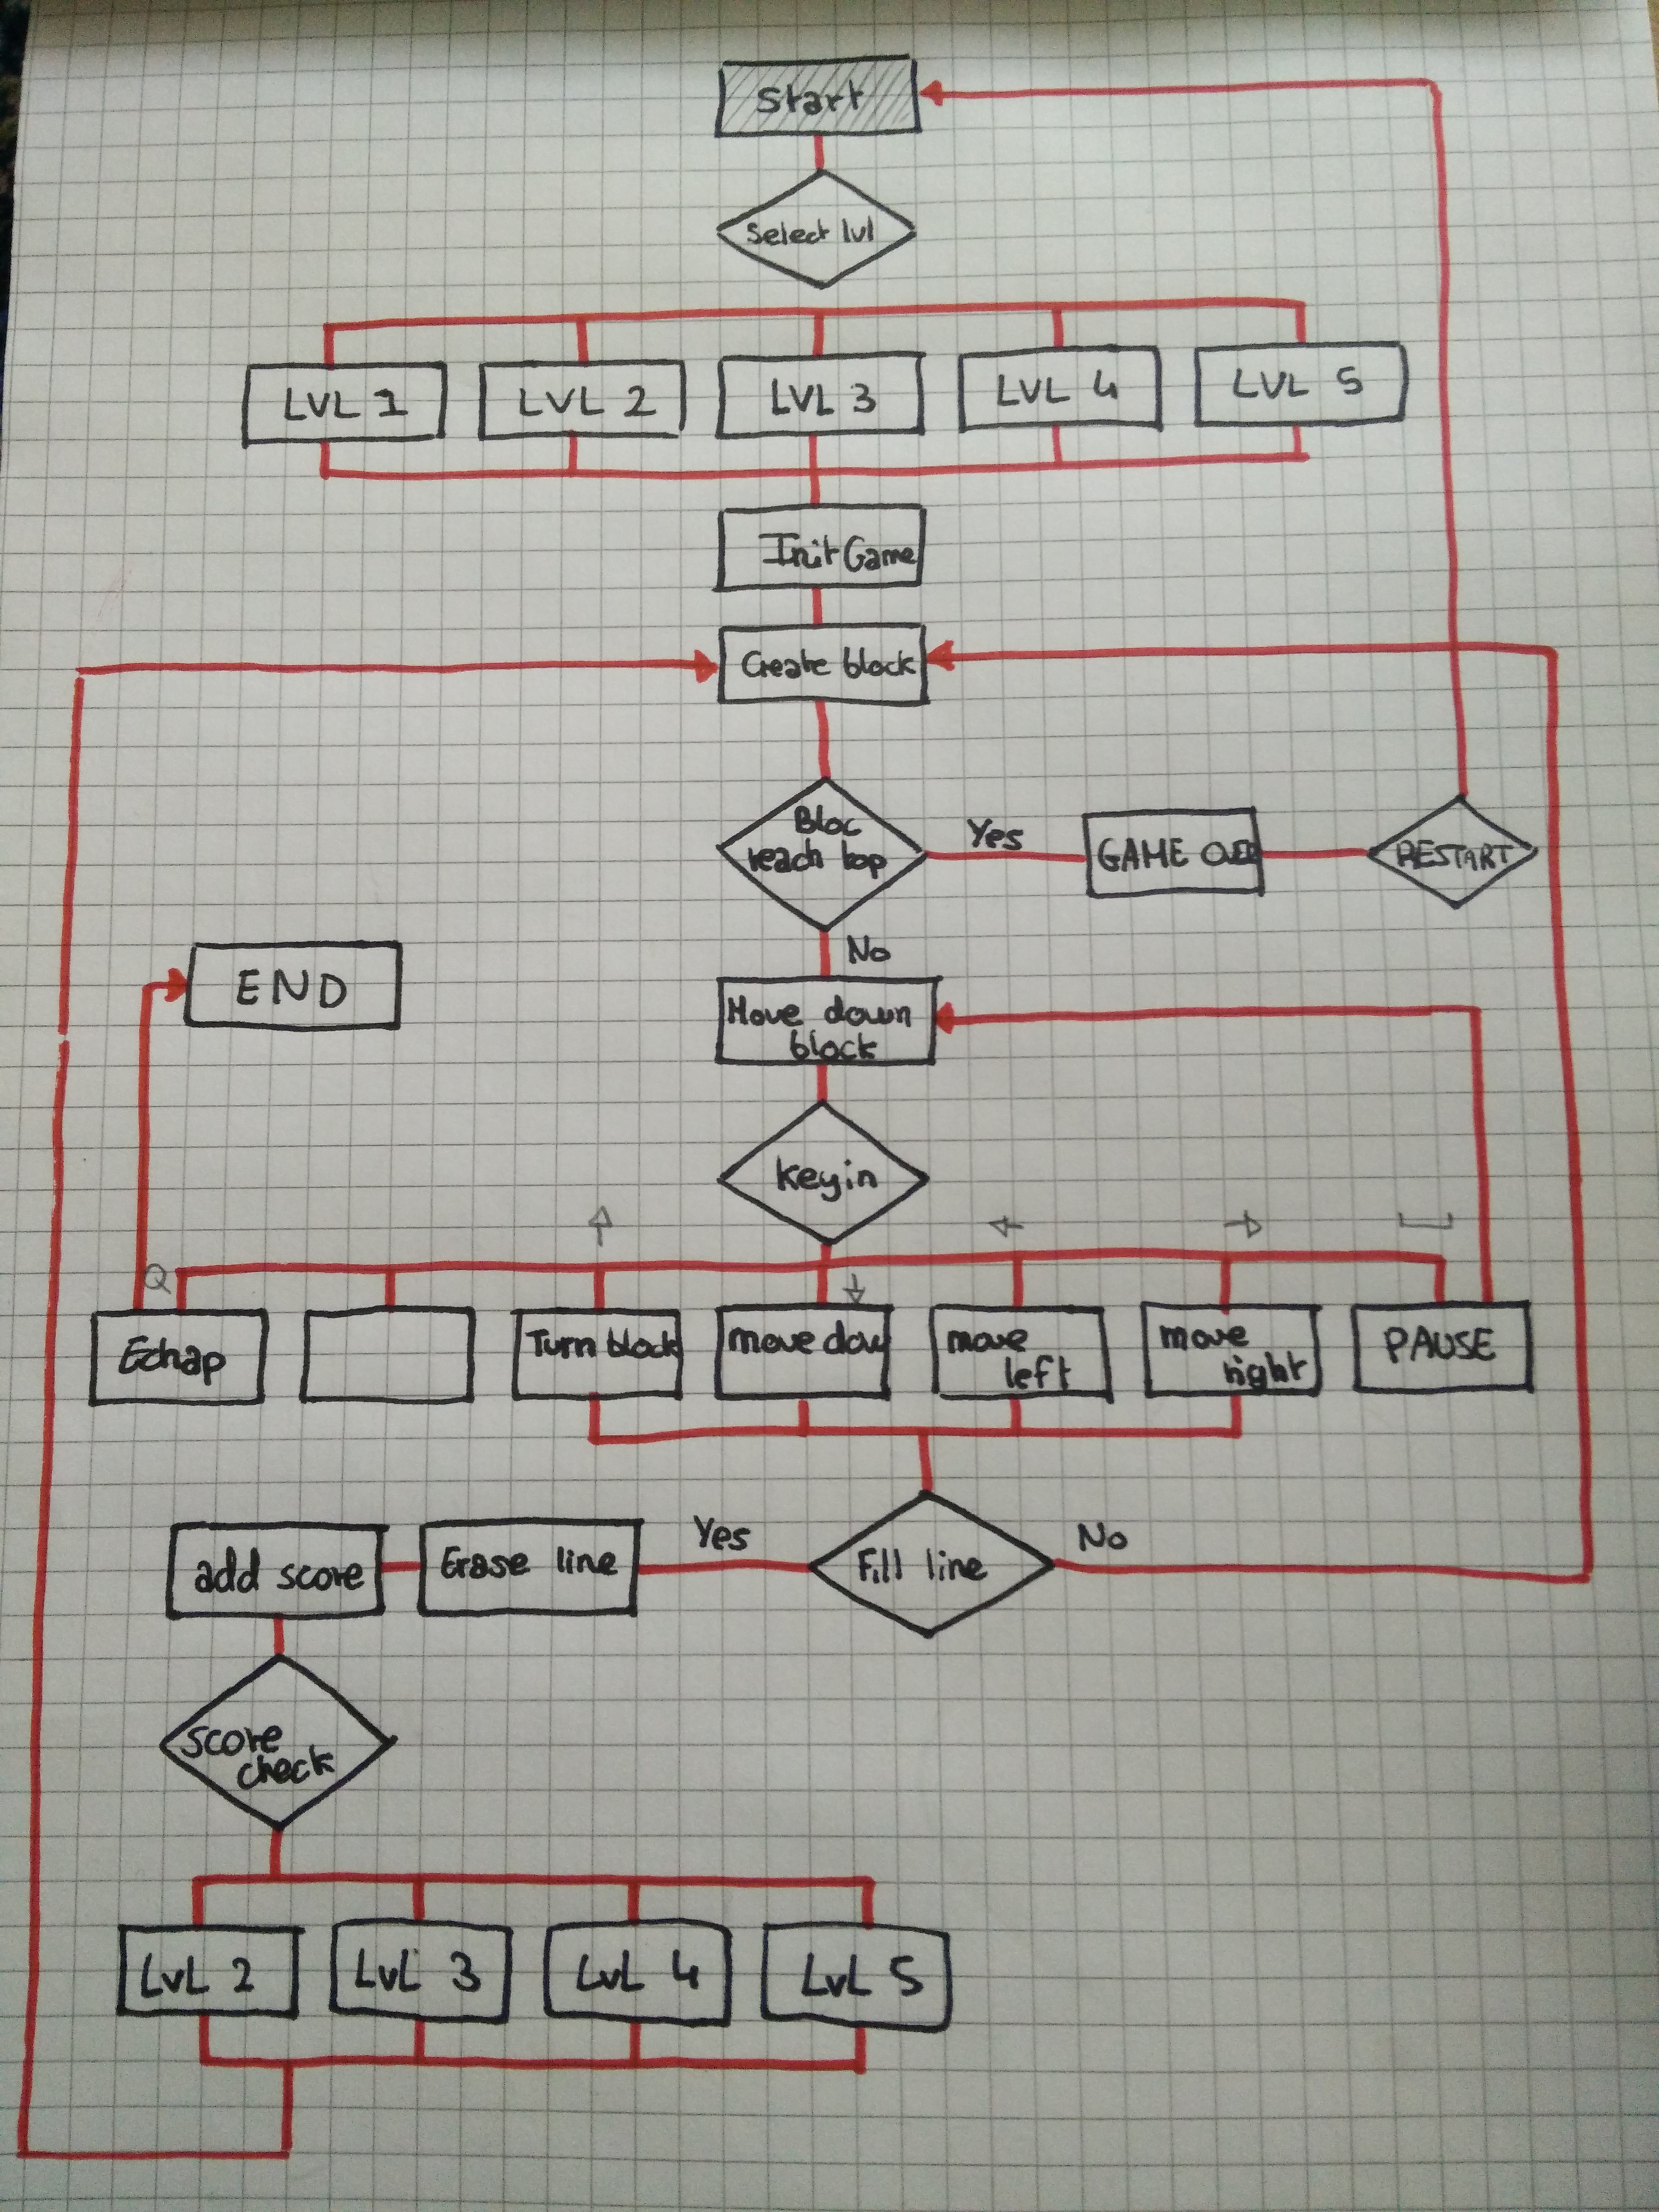 Start
Select lvl
LVL 1
LVL 2
LVL 3
LVL 4
LVL 5
Init Game
Create block
Bloc
reach top
Yes
GAME OVER
RESTART
No
END
Move down
block
keyin
Q
Echap
Turn block
move dow
move
left
move
right
PAUSE
add score
Erase line
Yes
Fill line
No
score
check
LvL 2
LvL 3
LvL 4
LvL 5